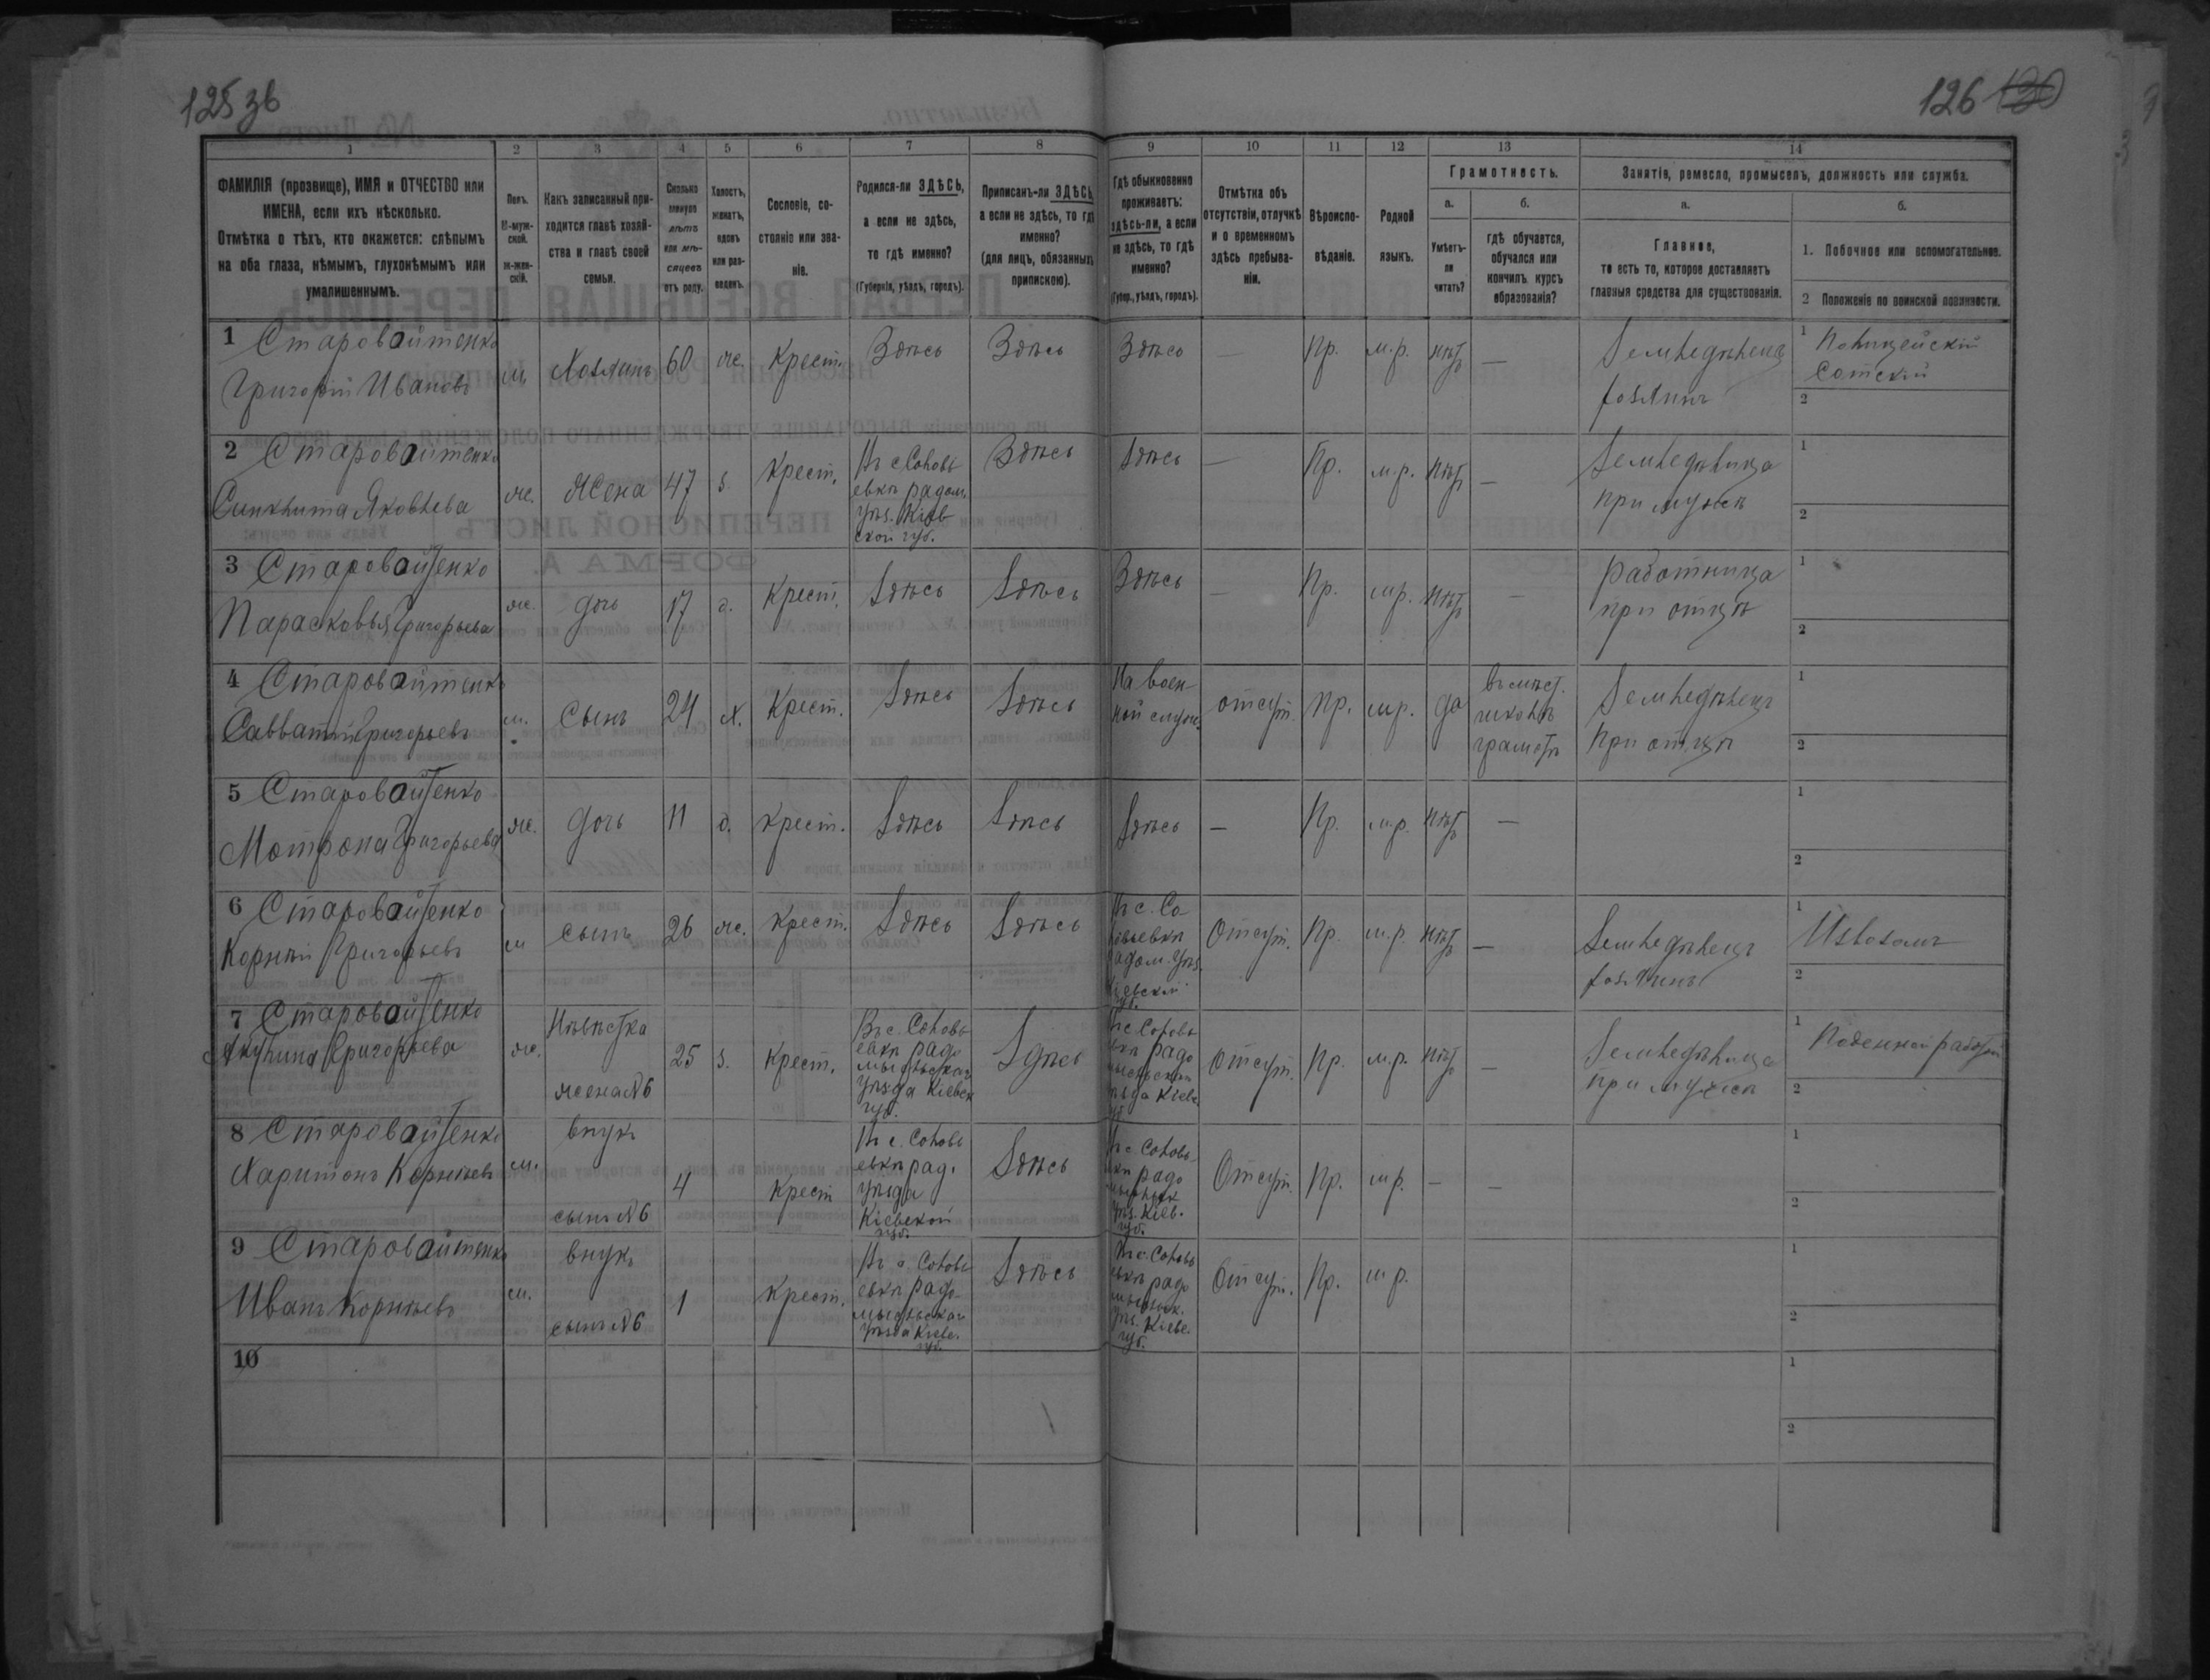 125 зв
126 130
1
2
3
4
5
6
7
8
9
10
11
12
13
14
ФАМИЛІЯ (прозвище), ИМЯ и ОТЧЕСТВО или
ИМЕНА, если ихъ нѣсколько.
Отмѣтка о тѣхъ, кто окажется: слѣпымъ
на оба глаза, нѣмымъ, глухонѣмымъ или
умалишеннымъ.
Полъ.
М-муж-
ской.
Ж-жен-
скій.
Какъ записанный при-
ходится главѣ хозяй-
ства и главѣ своей
семьи.
Сколько
минуло
лѣтъ
или мѣ-
сяцевъ
отъ роду.
Холостъ,
женатъ,
вдовъ
или раз-
веденъ.
Сословіе, со-
стояніе или зва-
ніе.
Родился-ли ЗДѢСЬ,
а если не здѣсь,
то гдѣ именно?
(Губернія, уѣздъ, городъ).
Приписанъ-ли ЗДѢСЬ,
а если не здѣсь, то гдѣ
именно?
(для лицъ, обязанныхъ
припискою).
Гдѣ обыкновенно
проживаетъ:
здѣсь-ли, а если
не здѣсь, то гдѣ
именно?
(Губер., уѣздъ, городъ).
Отмѣтка объ
отсутствіи, отлучкѣ
и о временномъ
здѣсь пребыва-
ніи.
Вѣроиспо-
вѣданіе.
Родной
языкъ.
Грамотность.
а.
Умѣетъ-
ли
читать?
б.
гдѣ обучается,
обучался или
кончилъ курсъ
образованія?
Занятіе, ремесло, промыселъ, должность или служба.
а.
Главное,
то есть то, которое доставляетъ
главныя средства для существованія.
б.
1. Побочное или вспомогательное.
2 Положеніе по воинской повинности.
1 Старовойтенко
Григорій Ивановъ
м Хозяинъ 60 ж. Крест. Здѣсь Здѣсь Здѣсь — Пр. м.р. нѣтъ —
Земледѣлецъ
хозяинъ
1 Полицейскій
Сотскій
2
2 Старовойтенко
Синклита Яковлева
ж. Жена 47 з. Крест.
Въ с Соловь
евкѣ радом.
уѣз. Кіев
ской губ.
Здѣсь Здѣсь — Пр. м.р. нѣтъ —
Земледѣлица
при мужѣ
1
2
3 Старовойтенко
Парасковья Григорьева
ж. дочь 17 д. Крест. Здѣсь Здѣсь Здѣсь — Пр. м.р. нѣтъ —
работница
при отцѣ
1
2
4 Старовойтенко
Савватій Григорьевъ
м. Сынъ 24 х. Крест. Здѣсь Здѣсь
На воен-
ной служ.
отсут. Пр. м.р. да
въ мѣст.
школѣ
грамотѣ
Земледѣлецъ
при отцѣ
1
2
5 Старовойтенко
Мотрона Григорьева
ж. дочь 11 д. крест. Здѣсь Здѣсь Здѣсь — Пр. м.р. нѣтъ —
1
2
6 Старовойтенко
Корнѣй Григорьевъ
м сынъ 26 ж. Крест. Здѣсь Здѣсь
Въ с. Со
ловьевкѣ
радом. уѣз.
Кіевской
губ.
Отсут. Пр. м.р. нѣтъ —
Земледѣлецъ
хозяинъ
1 Извозомъ
2
7 Старовойтенко
Акулина Григорьева
ж.
Невѣстка
жена №6
25 з. Крест.
Въ с. Соловь
евкѣ радо
мысльскаго
уѣзда Кіевск
губ.
Здѣсь
Въ с. Соловь
евкѣ радо
мысльскаго
уѣзда Кіевс.
губ
Отсут. Пр. м.р. нѣтъ —
Земледѣлица
при мужѣ
1 Поденной работой
2
8 Старовойтенко
Харитонъ Корнѣевъ
м.
внукъ
сынъ №6
4 Крест
Въ с. Соловь
евкѣ рад.
уѣзда
Кіевской
губ.
Здѣсь
Въ с. Соловь-
евкѣ радо
мысльск
уѣз. Кіев.
губ.
Отсут. Пр. м.р. — —
1
2
9 Старовойтенко
Иванъ Корнѣевъ
м.
внукъ
сынъ №6
1 Крест.
Въ с. Соловь
евкѣ радо-
мысльскаго
уѣзда Кіевс.
губ.
Здѣсь
Въ с. Соловь
евкѣ радо
мысльск.
уѣз. Кіевс.
губ.
Отсут. Пр. м.р.
1
2
10
1
2